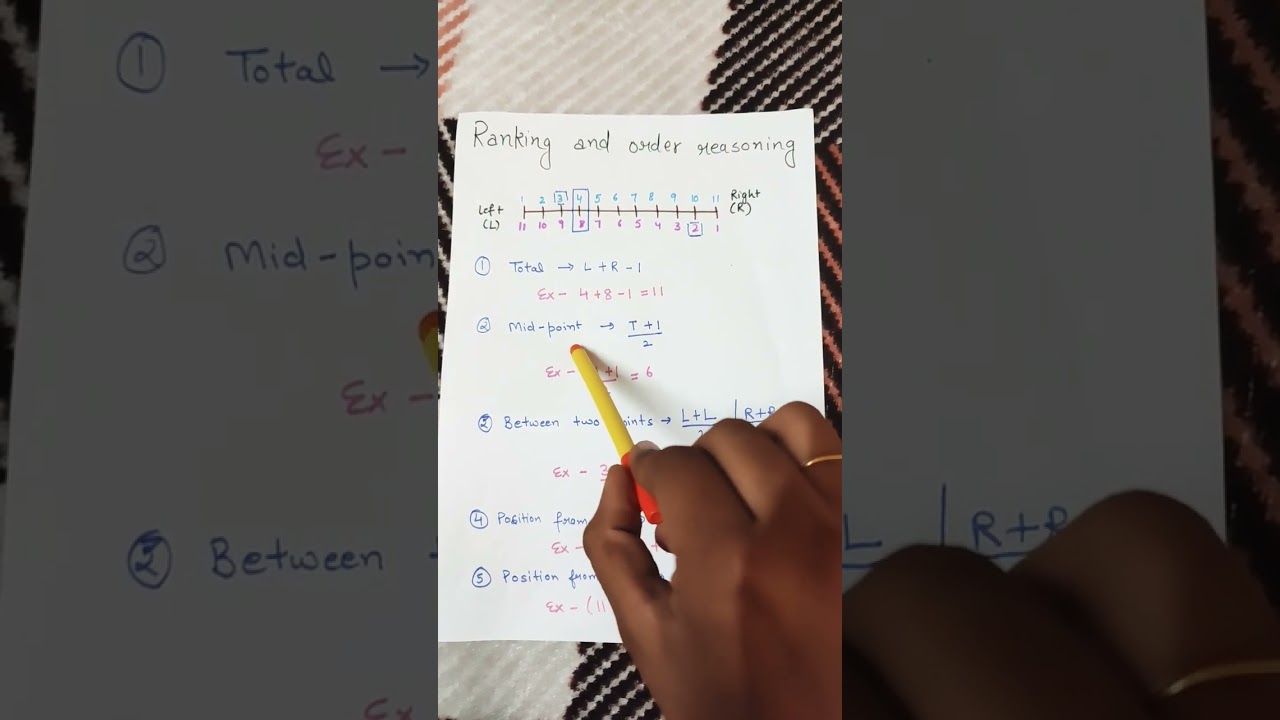 Ranking and order reasoning
1 2 3 4 5 6 7 8 9 10 11 Right
Left
(L) (R)
11 10 9 8 7 6 5 4 3 2 1
① Total → L + R - 1
Ex - 4 + 8 - 1 = 11
② Mid-point → T + 1
2
Ex - +1 = 6
Between two → L+L | R+
Ex - 3
④ Position from
Ex -
⑤ Position
Ex - (11
① Total →
Ex -
② Mid-poin
Ex -
Between
Ex
L | R+